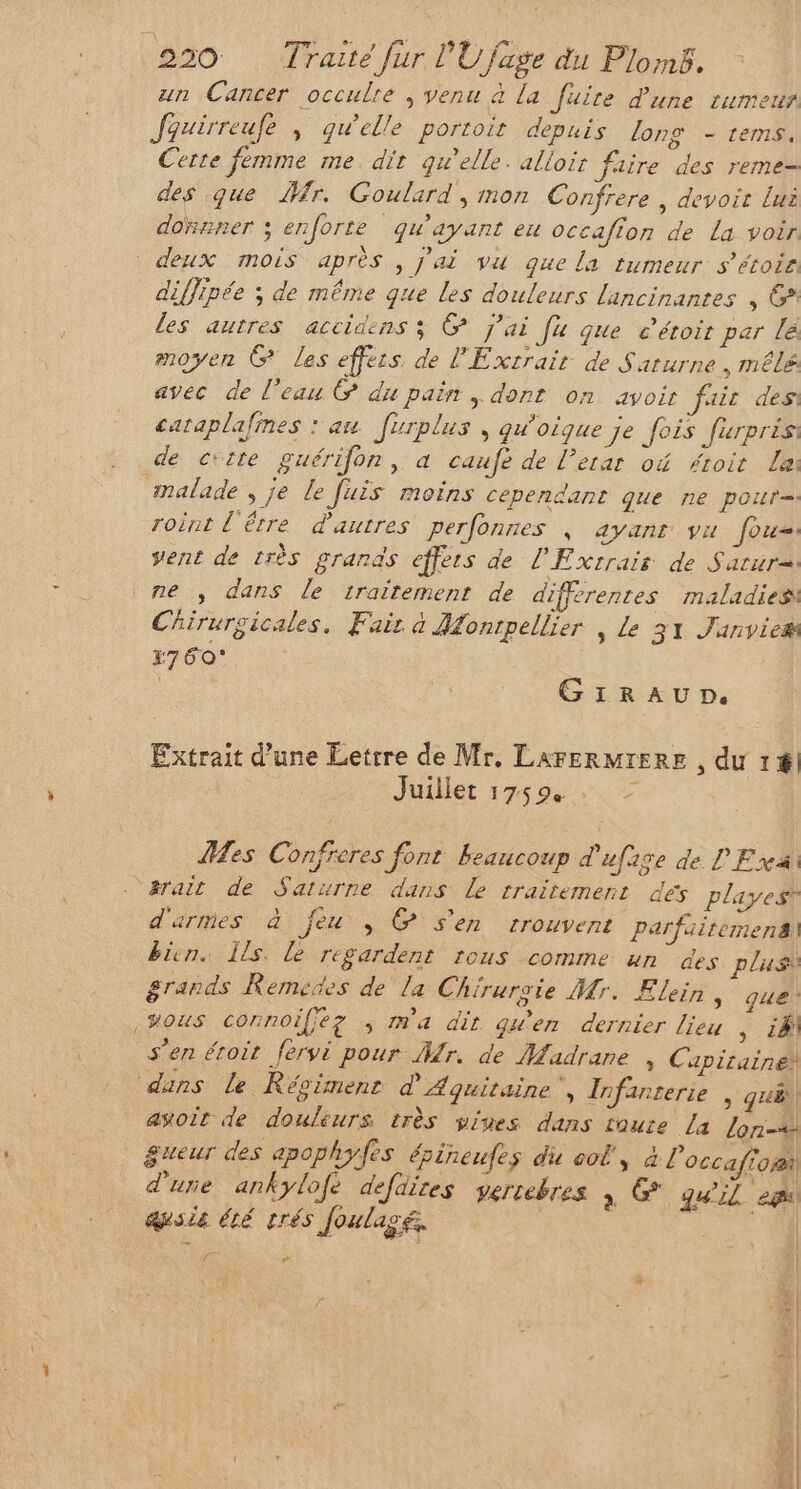 220 Traité ſur l'Uſage du Plomb.
un Cancer occulte, venu à la ſuite d'une tumeur
ſquirreuſe, qu'elle portoit depuis long-tems.
Cette femme me dit qu'elle alloit faire des reme-
des que Mr. Goulard, mon Confrere, devoit lui
donnner; enſorte qu'ayant eu occaſion de la voir
deux mois après, j'ai vu que la tumeur s'étoit
diſſipée; de même que les douleurs lancinantes, &
les autres accidens; & j'ai ſu que c'étoit par le
moyen & les effets de l'Extrait de Saturne, mêlé
avec de l'eau & du pain, dont on avoit fait des
cataplaſmes: au ſurplus, qu'oique je ſois ſurpris
de cette guériſon, a cauſe de l'etat où étoit la
malade, je le ſuis moins cependant que ne pour-
roint l'être d'autres perſonnes, ayant vu ſou-
vent de très grands effets de l'Extrait de Satur-
ne, dans le traitement de differentes maladies
Chirurgicales. Fait à Montpellier, le 31 Janvier
1760.
GIRAUD.
Extrait d'une Lettre de Mr. LAFERMIERE, du
Juillet 1759.
Mes Confreres font beaucoup d'uſage de l'Ex-
trait de Saturne dans le traitement des playes
d'armes à feu, & s'en trouvent parfaitement
bien. Ils le regardent tous comme un des plus
grands Remedes de la Chirurgie Mr. Elein, que
vous connoiſſez, m'a dit qu'en dernier lieu, il
s'en étoit ſervi pour Mr. de Madrane, Capitaine
dans le Régiment d'Aquitaine, Infanterie, qui
avoit de douleurs très vives dans toute la lon-
gueur des apophyſes épineuſes du col, à l'occaſion
d'une ankyloſe deſdites vertebres, & qu'il en
avoit été trés ſoulagé.